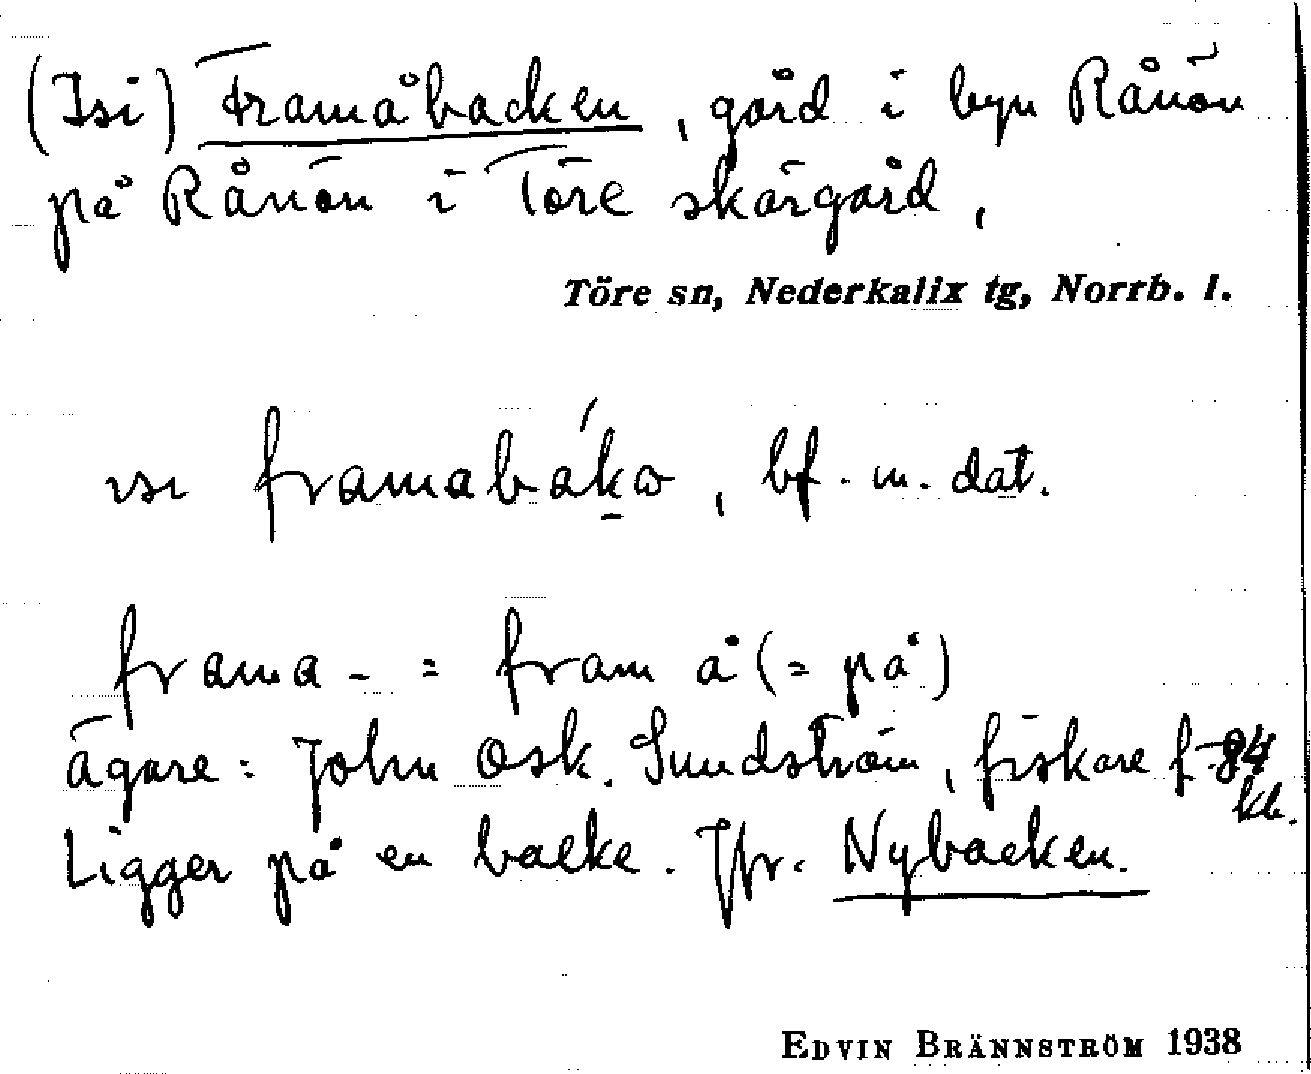 (Isi) Framåbacken, gård i byn Rånön
på Rånön i Töre skärgård,
Töre sn, Nederkalix tg, Norrb. l.
ısı framabáka, bf. m. dat.
frama- = fram å (= på)
Ägare: John Osk. Sundström, fiskare f-84
kb.
Ligger på en backe. Jfr. Nybacken.
EDVIN BRÄNNSTRÖM 1938